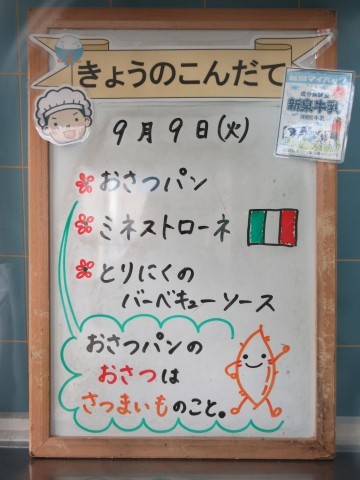 きょうのこんだて
新泉牛乳
9月9日(火)
おさつパン
ミネストローネ
とりにくの
バーベキューソース
おさつパンの
おさつは
さつまいものこと。